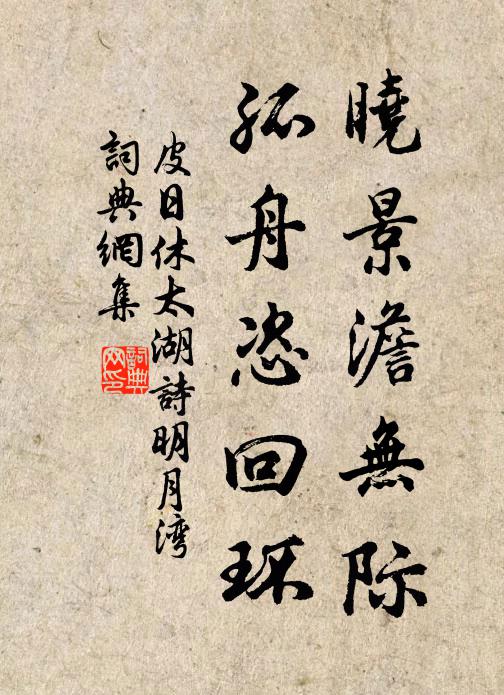 曉景澹無际
孤舟恣回环
皮日休太湖詩明月湾
詞典網集
詞典
网印